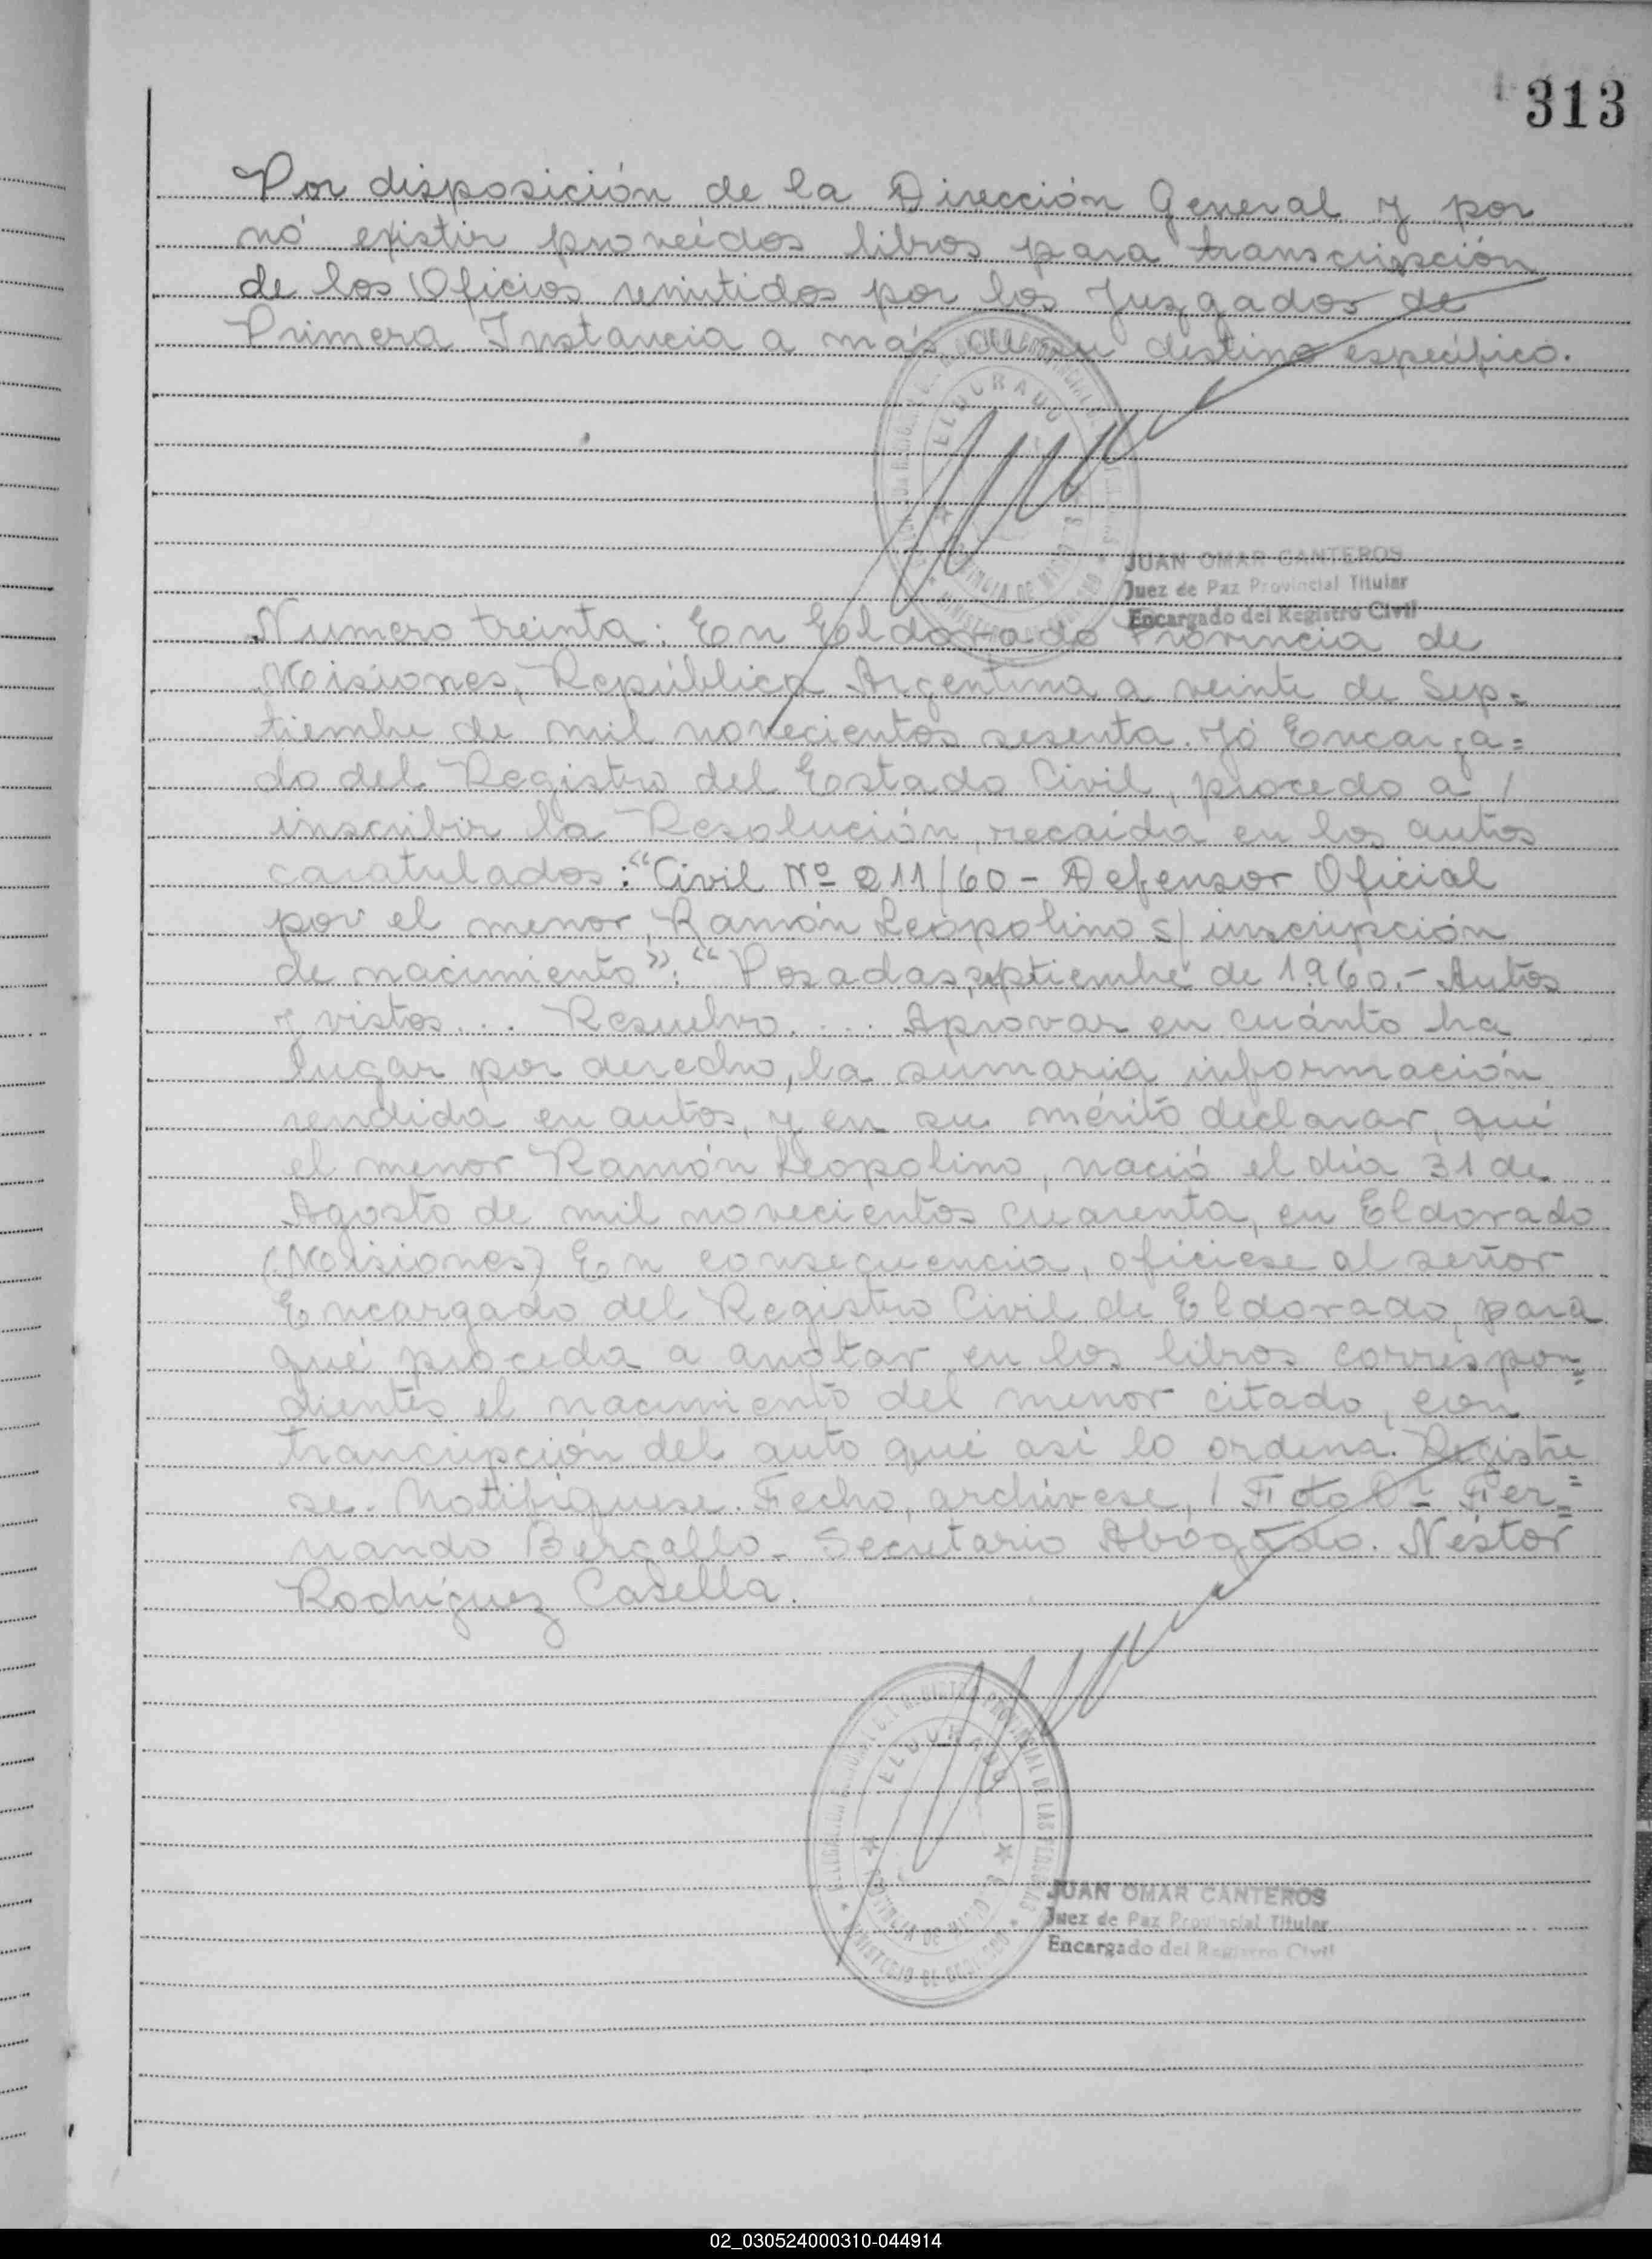 313
Por disposición de la Dirección General y por
nó existir proveídos libros para transcripción
de los Oficios remitidos por los Juzgados de
Primera Instancia a más de su destino específico.
ELDORADO
JUAN OMAR CANTEROS
Juez de Paz Provincial Titular
Encargado del Registro Civil
Numero treinta: En Eldorado Provincia de
Misiones, República Argentina a veinte de Sep=
tiembre de mil novecientos sesenta. Yó Encarga=
do del Registro del Estado Civil, procedo a /
inscribir la Resolución, recaída en los autos
caratulados: "Civil Nº 211/60 - Defensor Oficial
por el menor, Ramón Leopolino s/ inscripción
de nacimiento": "Posadas, septiembre de 1960.- Autos
y vistos... Resuelvo.... Aprovar en cuánto ha
lugar por derecho, la sumaria información
rendida en autos, y en su mérito declarar, qué
el menor Ramón Leopolino, nació el día 31 de
Agosto de mil novecientos cuarenta, en Eldorado
(Misiones) En consecuencia, ofíciese al señor
Encargado del Registro Civil de Eldorado, para
qué proceda a anotar en los libros correspon=
dientes el nacimiento del menor citado, con
trancripción del auto qué así lo ordena. Registre
se. Notifíquese. Fecho, archívese, / Fdo Dr Fer=
nando Bergallo - Secretario Abogado. Néstor
Rodríguez Casella.
ELDORADO
JUAN OMAR CANTEROS
Juez de Paz Provincial Titular
Encargado del Registro Civil
02_030524000310-044914